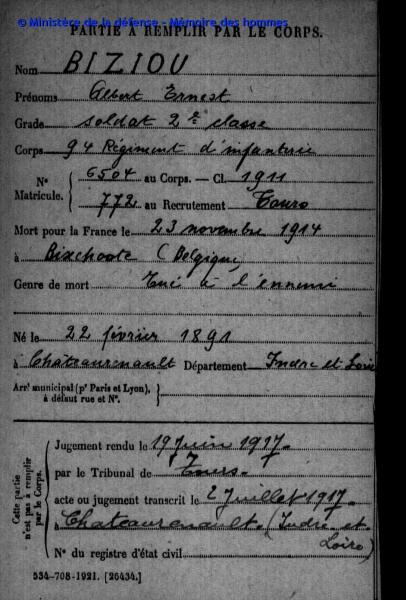 © Ministère de la défense - Mémoire des hommes
PARTIE A REMPLIR PAR LE CORPS.
Nom BIZIOU
Prénoms Albert Ernest
Grade soldat 2e classe
Corps 94 Régiment d'infanterie
N° Matricule. 6504 au Corps. — Cl. 1911
772 au Recrutement Tours
Mort pour la France le 23 novembre 1914
à Bixchoote (Belgique)
Genre de mort Tué à l'ennemi
Né le 22 février 1891
à Chateaurenault Département Indre et Loire
Arrt municipal (pr Paris et Lyon),
à défaut rue et N°.
Cette partie n'est pas à remplir par le Corps.
Jugement rendu le 19 Juin 1917
par le Tribunal de Tours
acte ou jugement transcrit le 2 Juillet 1917
à Chateaurenault (Indre et
Loire)
N° du registre d'état civil
534-708-1921. [26434.]